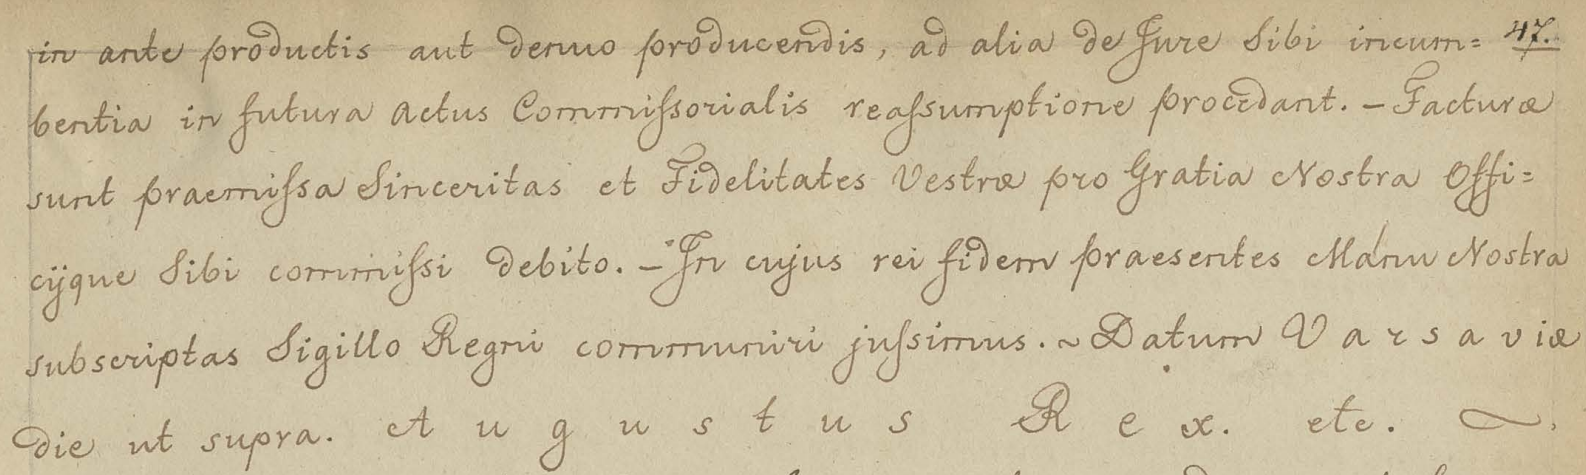 in ante productis aut denuo producendis, ad alia de Jure Sibi incum= 47.
bentia in futura Actus Commissorialis reassumptione procedant. – Facturæ
sunt praemissa Sinceritas et Fidelitates Vestræ pro Gratia Nostra Offi=
cijque Sibi commissi debito. – In cujus rei fidem praesentes Manu Nostra
subscriptas Sigillo Regni communiri jussimus. ~ Datum Varsaviæ
die ut supra. Augustus Rex. etc.